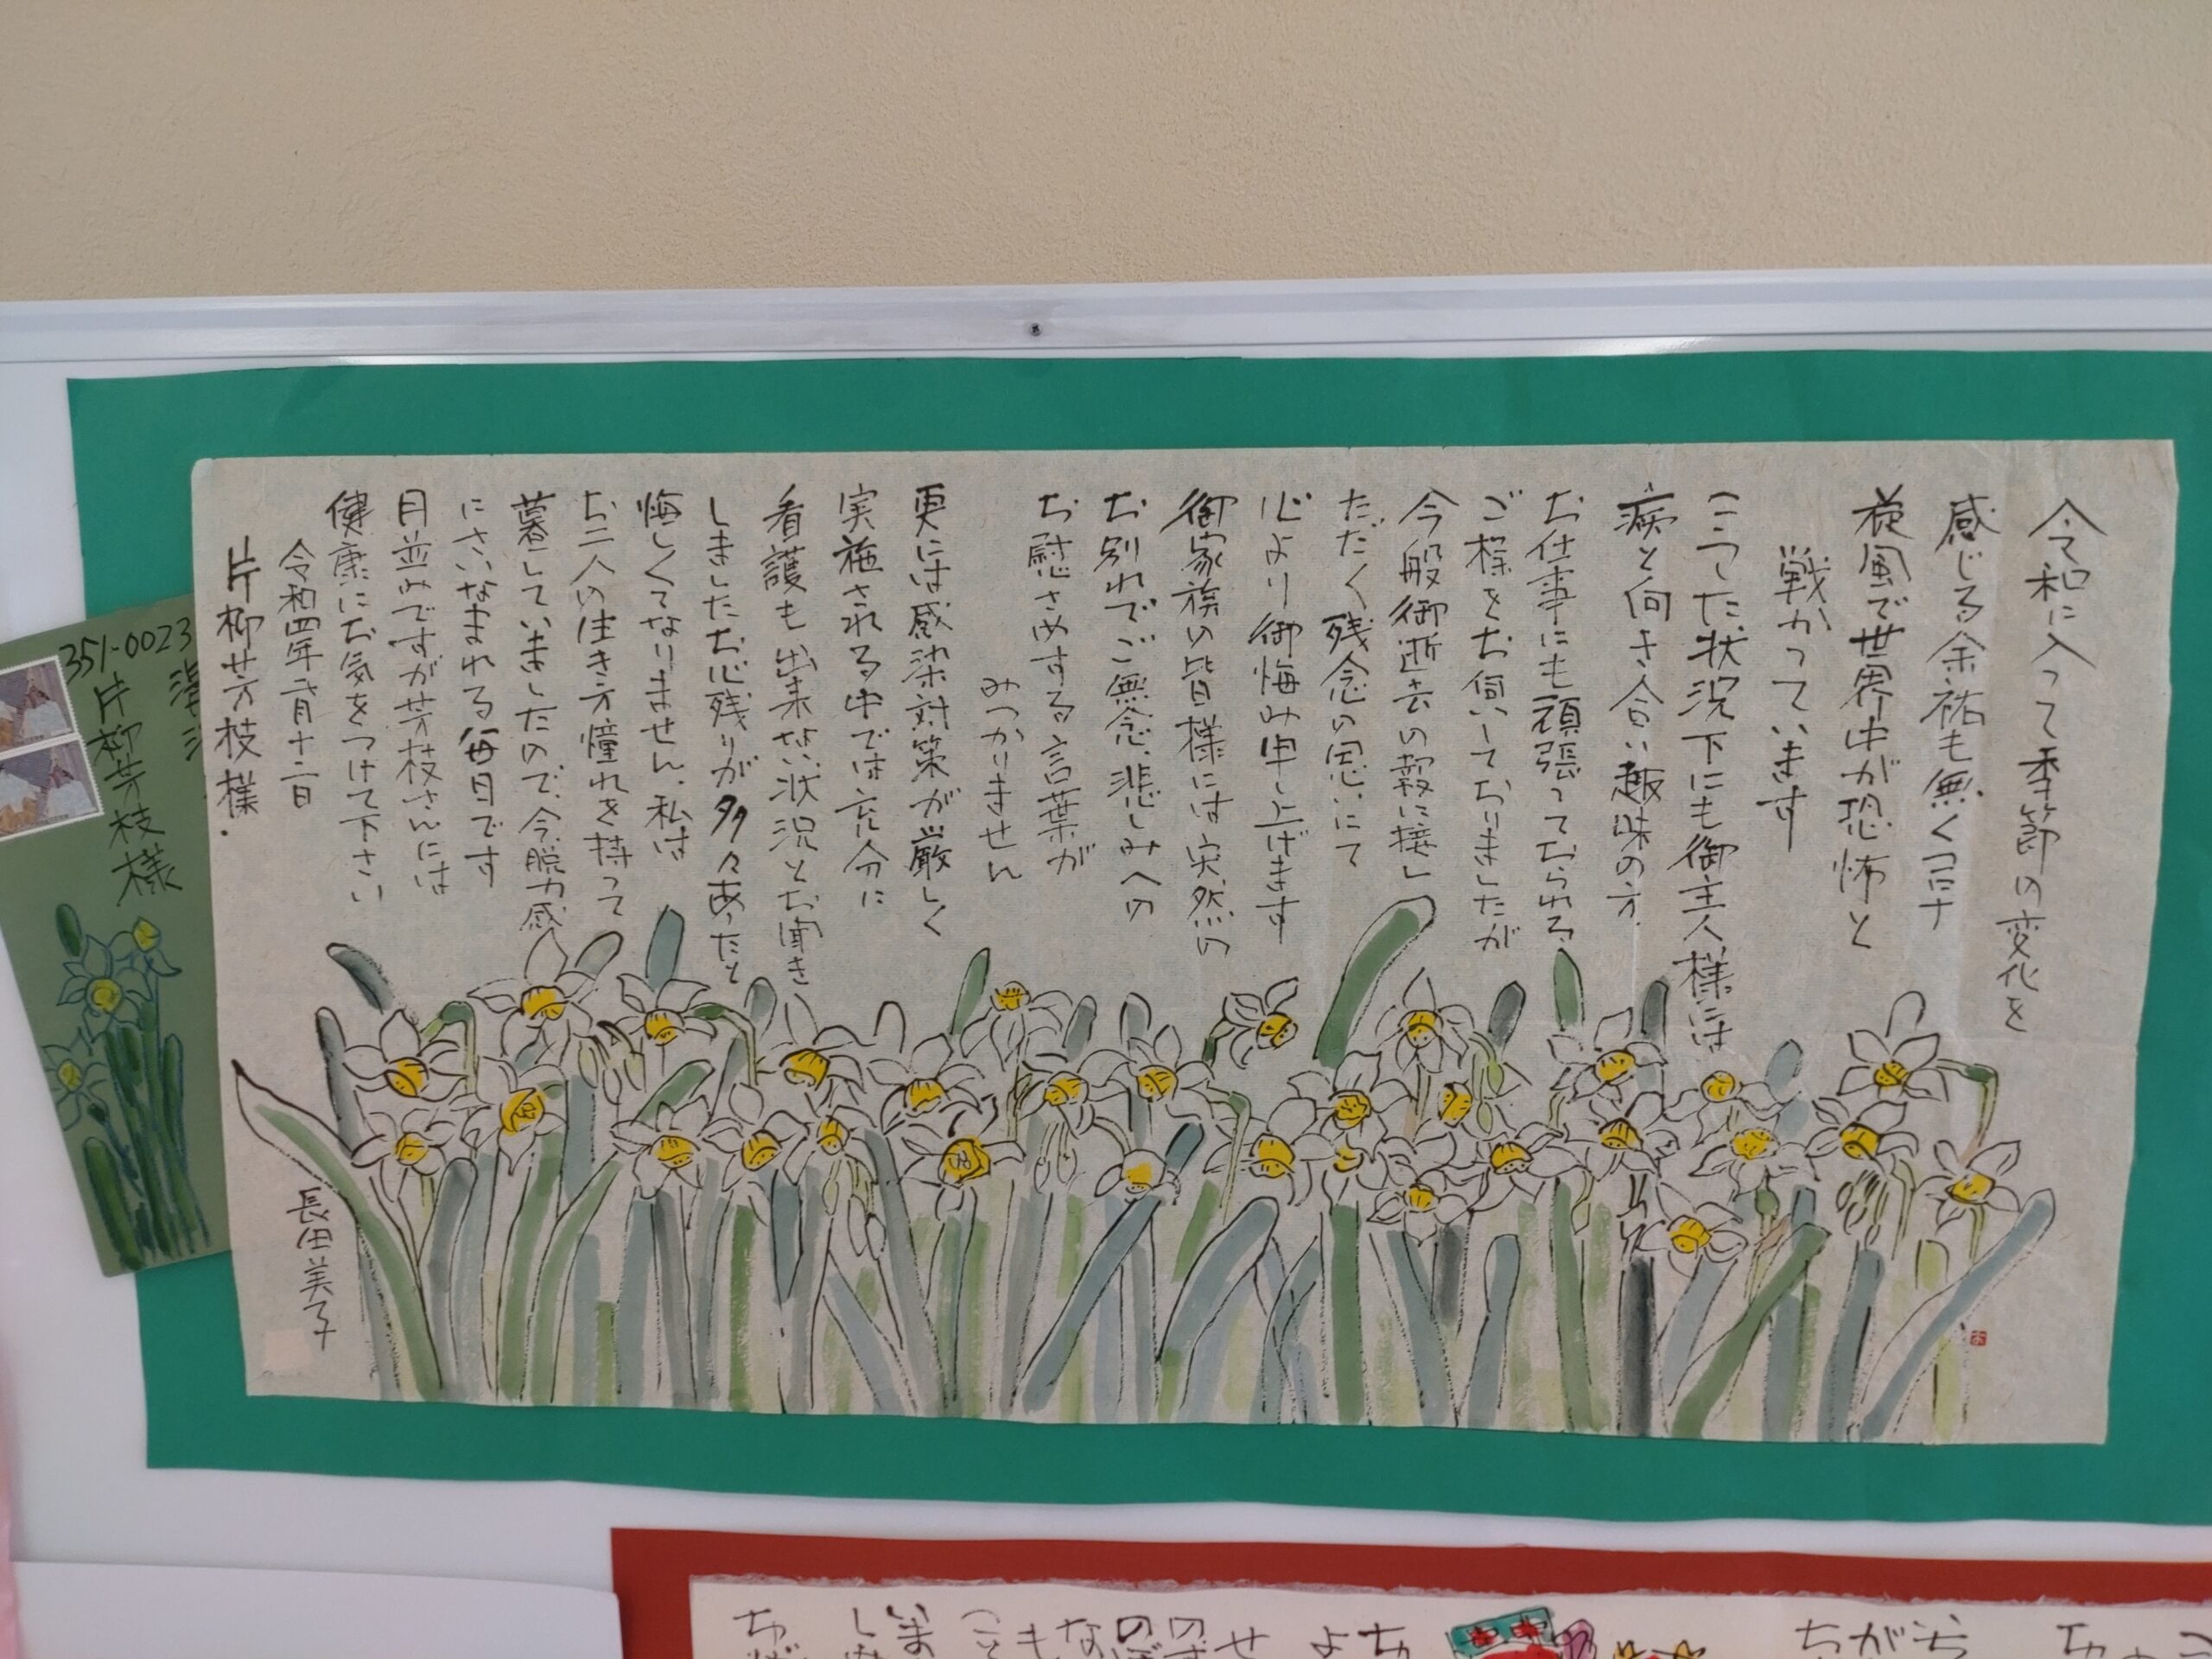 令和に入って季節の変化を
感じる余裕も無くコロナ
旋風で世界中が恐怖と
戦かっています
こうした状況下にも御主人様には
病と向き合い趣味の方
お仕事にも頑張っておられる
ご様子をお伺いしておりましたが
今般御逝去の報に接し
ただく残念の思いにて
心より御悔み申し上げます
御家族の皆様には突然の
お別れでご無念、悲しみへの
お慰さめする言葉が
みつかりません
更には感染対策が厳しく
実施される中では充分に
看護も出来ない状況とお聞き
しましたお心残りが多々あったと
悔しくてなりません、私は
お二人の生き方憧れを持って
暮していましたので、今、脱力感
にさいなまれる毎日です
月並みですが芳枝さんには
健康にお気をつけて下さい
令和四年二月十二日
片柳芳枝様
長田美子
351-0023
片柳芳枝様